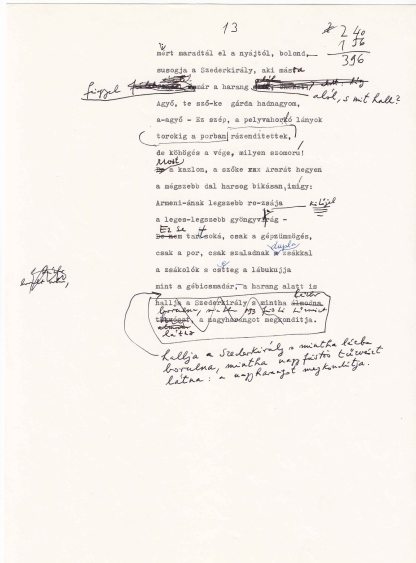 13
240
196
396
mért maradtál el a nyájtól, bolond,
susogja a Szederkirály, aki másta
figyel már a harang
alól, s mit hall?
Agyő, te sző-ke gárda hadnagyom,
a-agyő - Ez szép, a pelyvahordó lányok
torokig a porban rázendítettek,
de köhögés a vége, milyen szomorú!
Most
a kazlon, a szőke Ararát hegyen
a mégszebb dal harsog bikásan, imígy:
Armeni-ának legszebb ro-zsája
a leges-legszebb gyöngyvirág -
Ez se
De nem tart soká, csak a gépzümmögés,
dupla
csak a por, csak szaladnak zsákkal
a zsákolók s csetteg a lábukujja
mint a gébicsmadár, a harang alatt is
hallja a Szederkirály s mintha álmodna,
borulna,
a nagyharangot megkondítja.
látna
hallja a Szederkirály s mintha lázba
borulna, mintha nagy füstös tűzvészt
látna: a nagyharangot megkondítja.